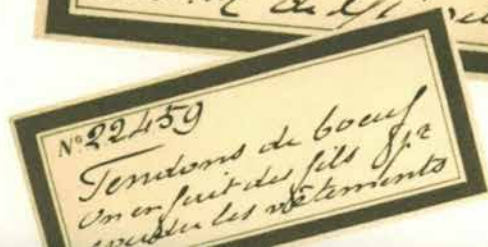 Nº 22459
Tendons de boeuf
on en fait des fils pr
coudre les vêtements